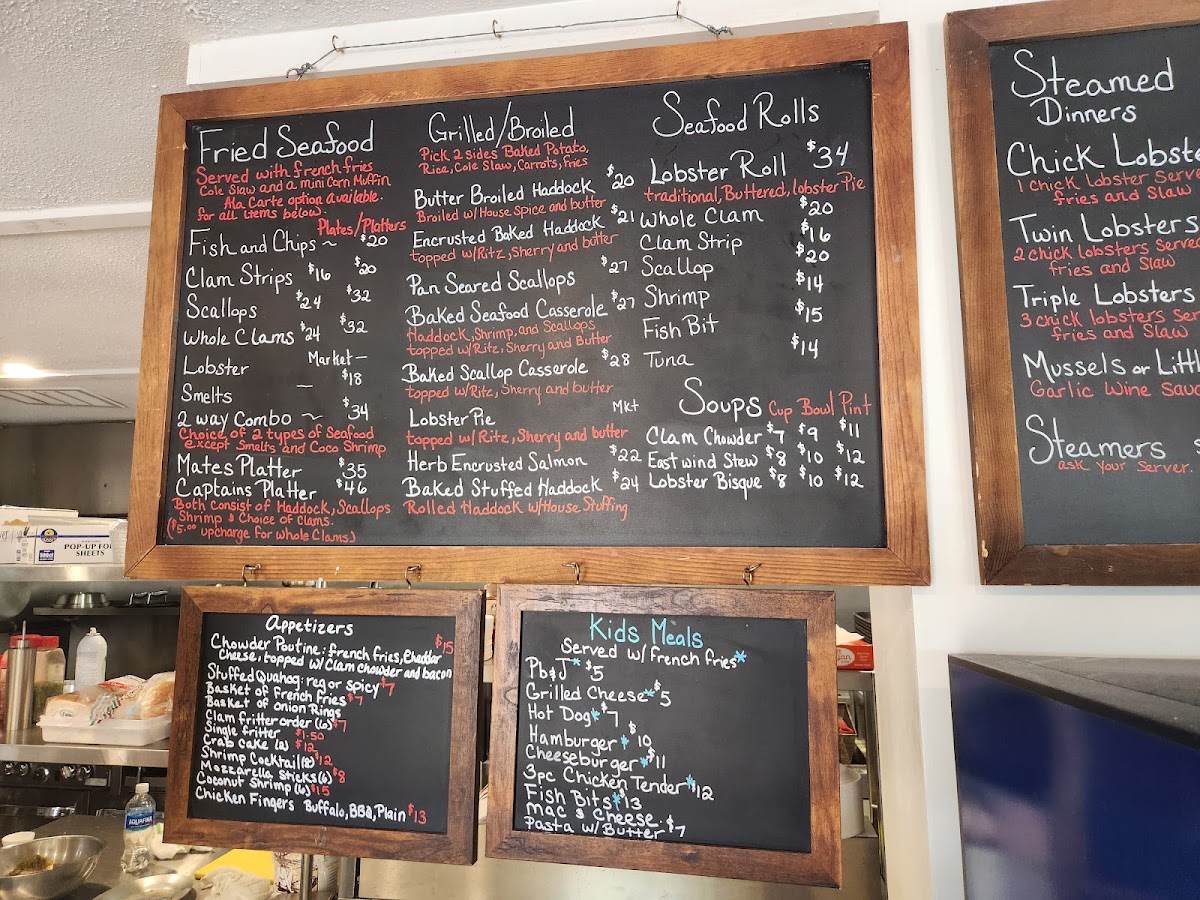 Fried Seafood
Served with french fries
Cole Slaw and a mini Corn Muffin
Ala Carte option available.
for all items below.
Plates/Platters
Fish and Chips ~ $20
Clam Strips $16 $20
Scallops $24 $32
Whole Clams $24 $32
Lobster Market —
Smelts — $18
2 way Combo ~ $34
Choice of 2 types of Seafood
except Smelts and Coco Shrimp
Mates Platter $35
Captains Platter $46
Both consist of Haddock, Scallops
Shrimp & Choice of clams.
($5.00 upcharge for whole Clams)
Grilled/Broiled
Pick 2 sides Baked Potato,
Rice, Cole Slaw, Carrots, fries
Butter Broiled Haddock $20
Broiled w/House Spice and butter
Encrusted Baked Haddock $21
topped w/Ritz, Sherry and butter
Pan Seared Scallops $27
Baked Seafood Casserole $27
Haddock, Shrimp, and Scallops
topped w/Ritz, Sherry and Butter
Baked Scallop Casserole $28
topped w/Ritz, Sherry and butter
Lobster Pie Mkt
topped w/Ritz, Sherry and butter
Herb Encrusted Salmon $22
Baked Stuffed Haddock $24
Rolled Haddock w/House Stuffing
Seafood Rolls
Lobster Roll $34
traditional, Buttered, lobster Pie
Whole Clam $20
Clam Strip $16
Scallop $20
Shrimp $14
Fish Bit $15
Tuna $14
Soups Cup Bowl Pint
Clam Chowder $7 $9 $11
East wind Stew $8 $10 $12
Lobster Bisque $8 $10 $12
Steamed
Dinners
Chick Lobste
1 chick lobster Serve
fries and Slaw
Twin Lobsters
2 chick lobsters Served
fries and Slaw
Triple Lobsters
3 chick lobsters Ser
fries and Slaw
Mussels or Littl
Garlic Wine Sauc
Steamers $
ask your Server.
Appetizers
Chowder Poutine: french fries, Cheddar $15
Cheese, topped w/ Clam chowder and bacon
Stuffed Quahog: reg or spicy $7
Basket of french fries $7
Basket of onion Rings
Clam fritter order (6) $7
Single fritter $1.50
Crab Cake $12
Shrimp Cocktail (8) $12
Mozzarella Sticks (6) $8
Coconut Shrimp (6) $15
Chicken Fingers Buffalo, BBQ, Plain $13
Kids Meals
Served w/ French fries*
Pb&J* $5
Grilled Cheese* $5
Hot Dog* $7
Hamburger* $10
Cheeseburger* $11
3pc Chicken Tender* $12
Fish Bits* $13
Mac & Cheese
Pasta w/Butter $7
POP-UP FO
SHEETS
AQUAFINA